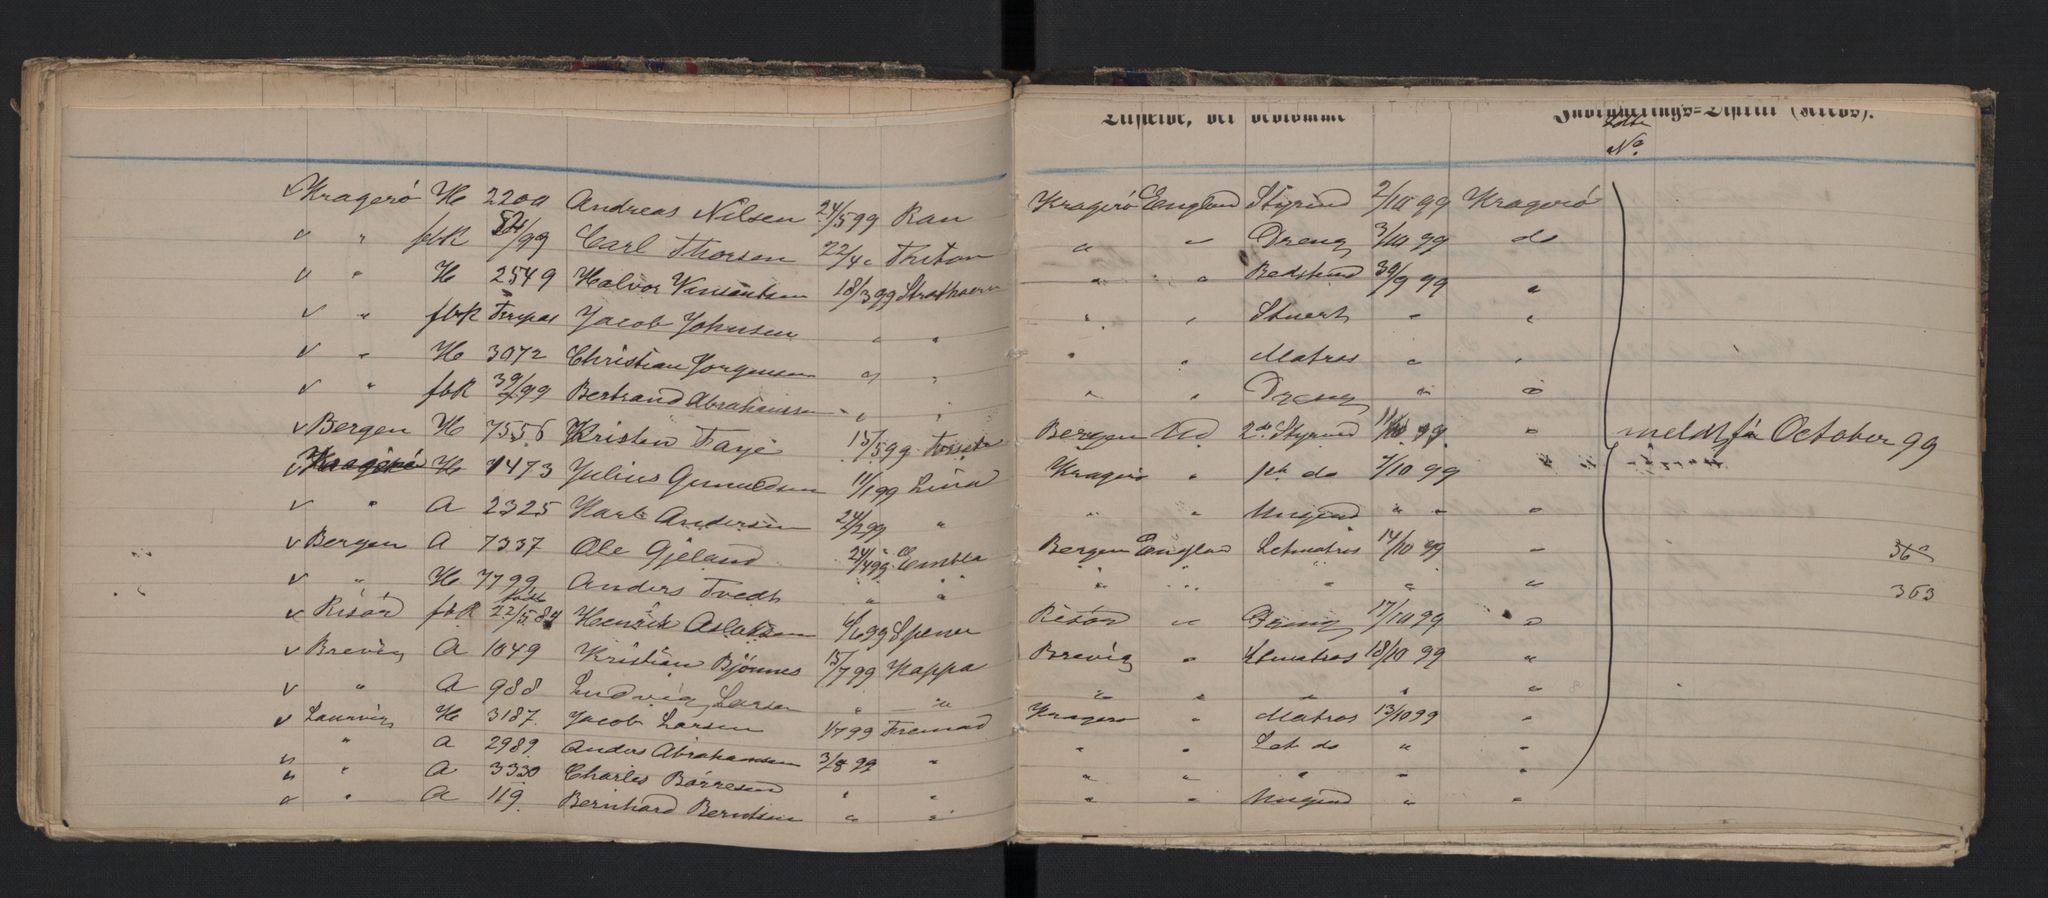 Tilfælde, det vedkomme Indrullerings-Distrikt (Kreds).
No.
v Kragerö H 2200 Andreas Nilsen 24/5 99 Ran Kragerö England Styrmd 2/10 99 Kragerö
v " fbk 54/99 Carl Thorsen 22/4 " Triton " " Dreng 3/10 99 do
v " H 2549 Halvor Vinsentsen 18/3 99 " " Bedstmd 30/9 99 "
v " fbk Jacob Johnsen " " " " Stuert " "
v " H 3072 Christian Jorgensen " " " " Matros " "
v " fbk 39/99 Bertrand Abrahamsen " " " " Dreng " "
v Bergen H 7556 Kristen Fayé 15/5 99 Bergen Nd 2de Styrmd 11/10 99 " meldt for October 99
v H 1473 Julius Gunuldsen 11/1 99 Lina Kragerö " do 7/10 99 "
v " A 2325 Karl Andersen 24/2 99 " " " Ungmd " " "
v Bergen A 7337 Ole Gjeland 24/4 99 Embla Bergen England Letmatros 14/10 99 " 360
v " H 7799 Anders Tvedt " " " " " " " 363
v Risör fbk født 22/5 84 Henrik Aslaksen 6/6 99 Spener Risör " Dreng 17/10 99 "
v Brevig A 1049 Kristian Bjönnes 15/7 99 Kappa Brevig " Letmatros 18/10 99 "
v " A 988 Ludvig Larsen " " " " " " "
v Laurvig H 3187 Jacob Larsen 1/7 99 Fremad Kragerö " Matros 13/10 99 "
" " A 2989 Anders Abrahamsen 3/8 99 " " " Let do " "
" " A 3330 Charles Börresen " " " " " " "
v " A 119. Bernhard Berntsen " " " " Ungmd " "